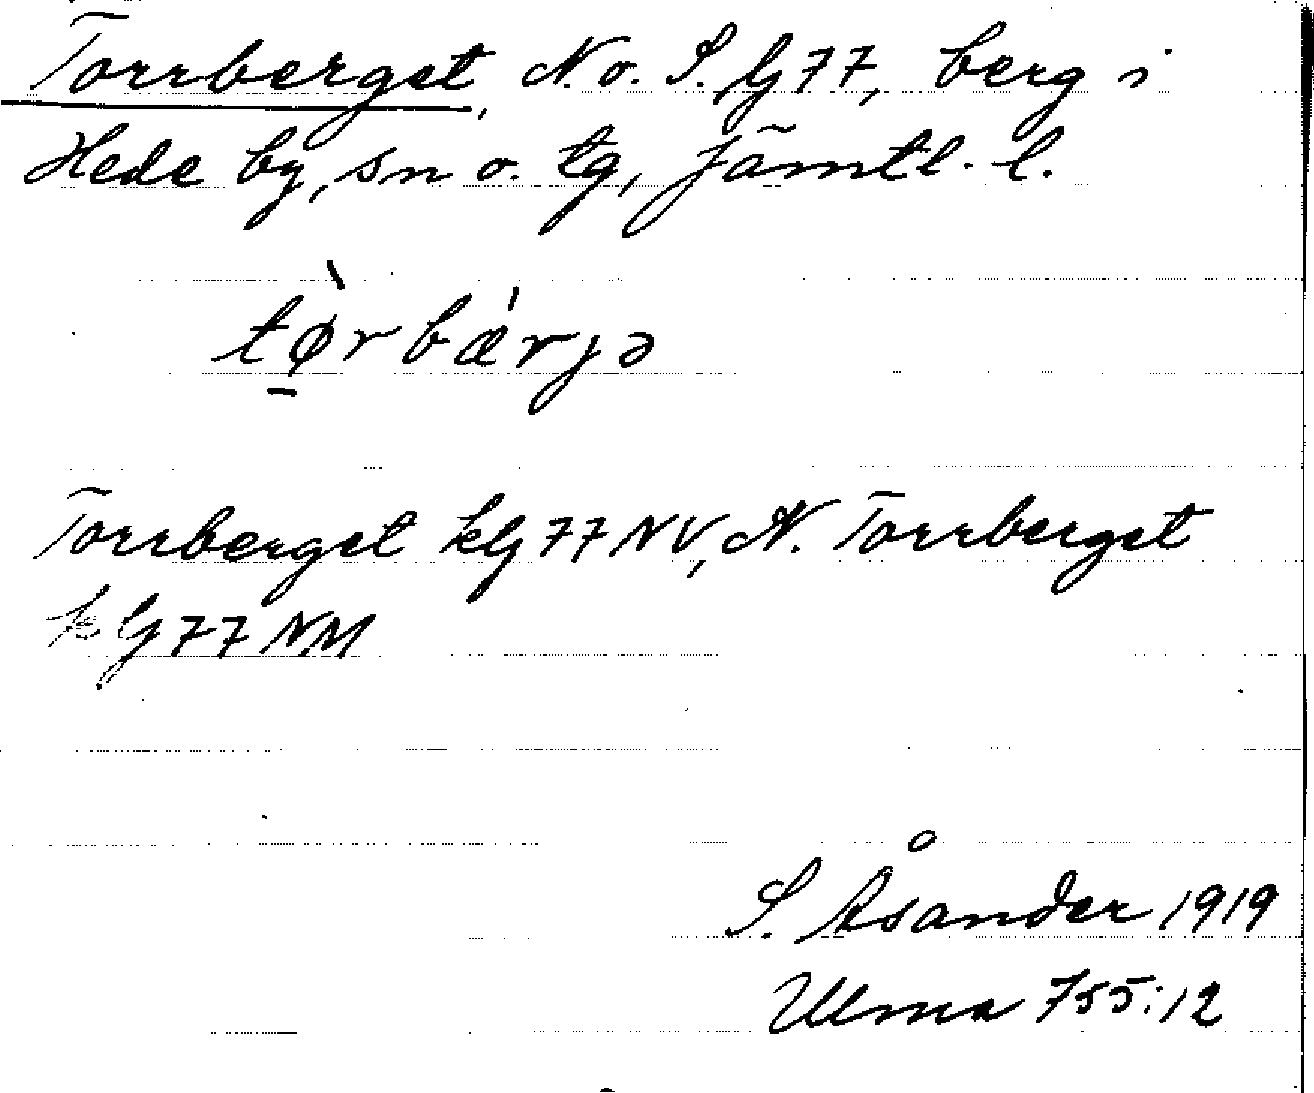 Torrberget, N. o. S. G77, berg i
Hede by, sn o. tg, Jämtl. l.
tø̱̀rbǽrjə
Torrberget kG77NV, N. Torrberget
kG77NM
S. Åsander 1919
Ulma 755:12